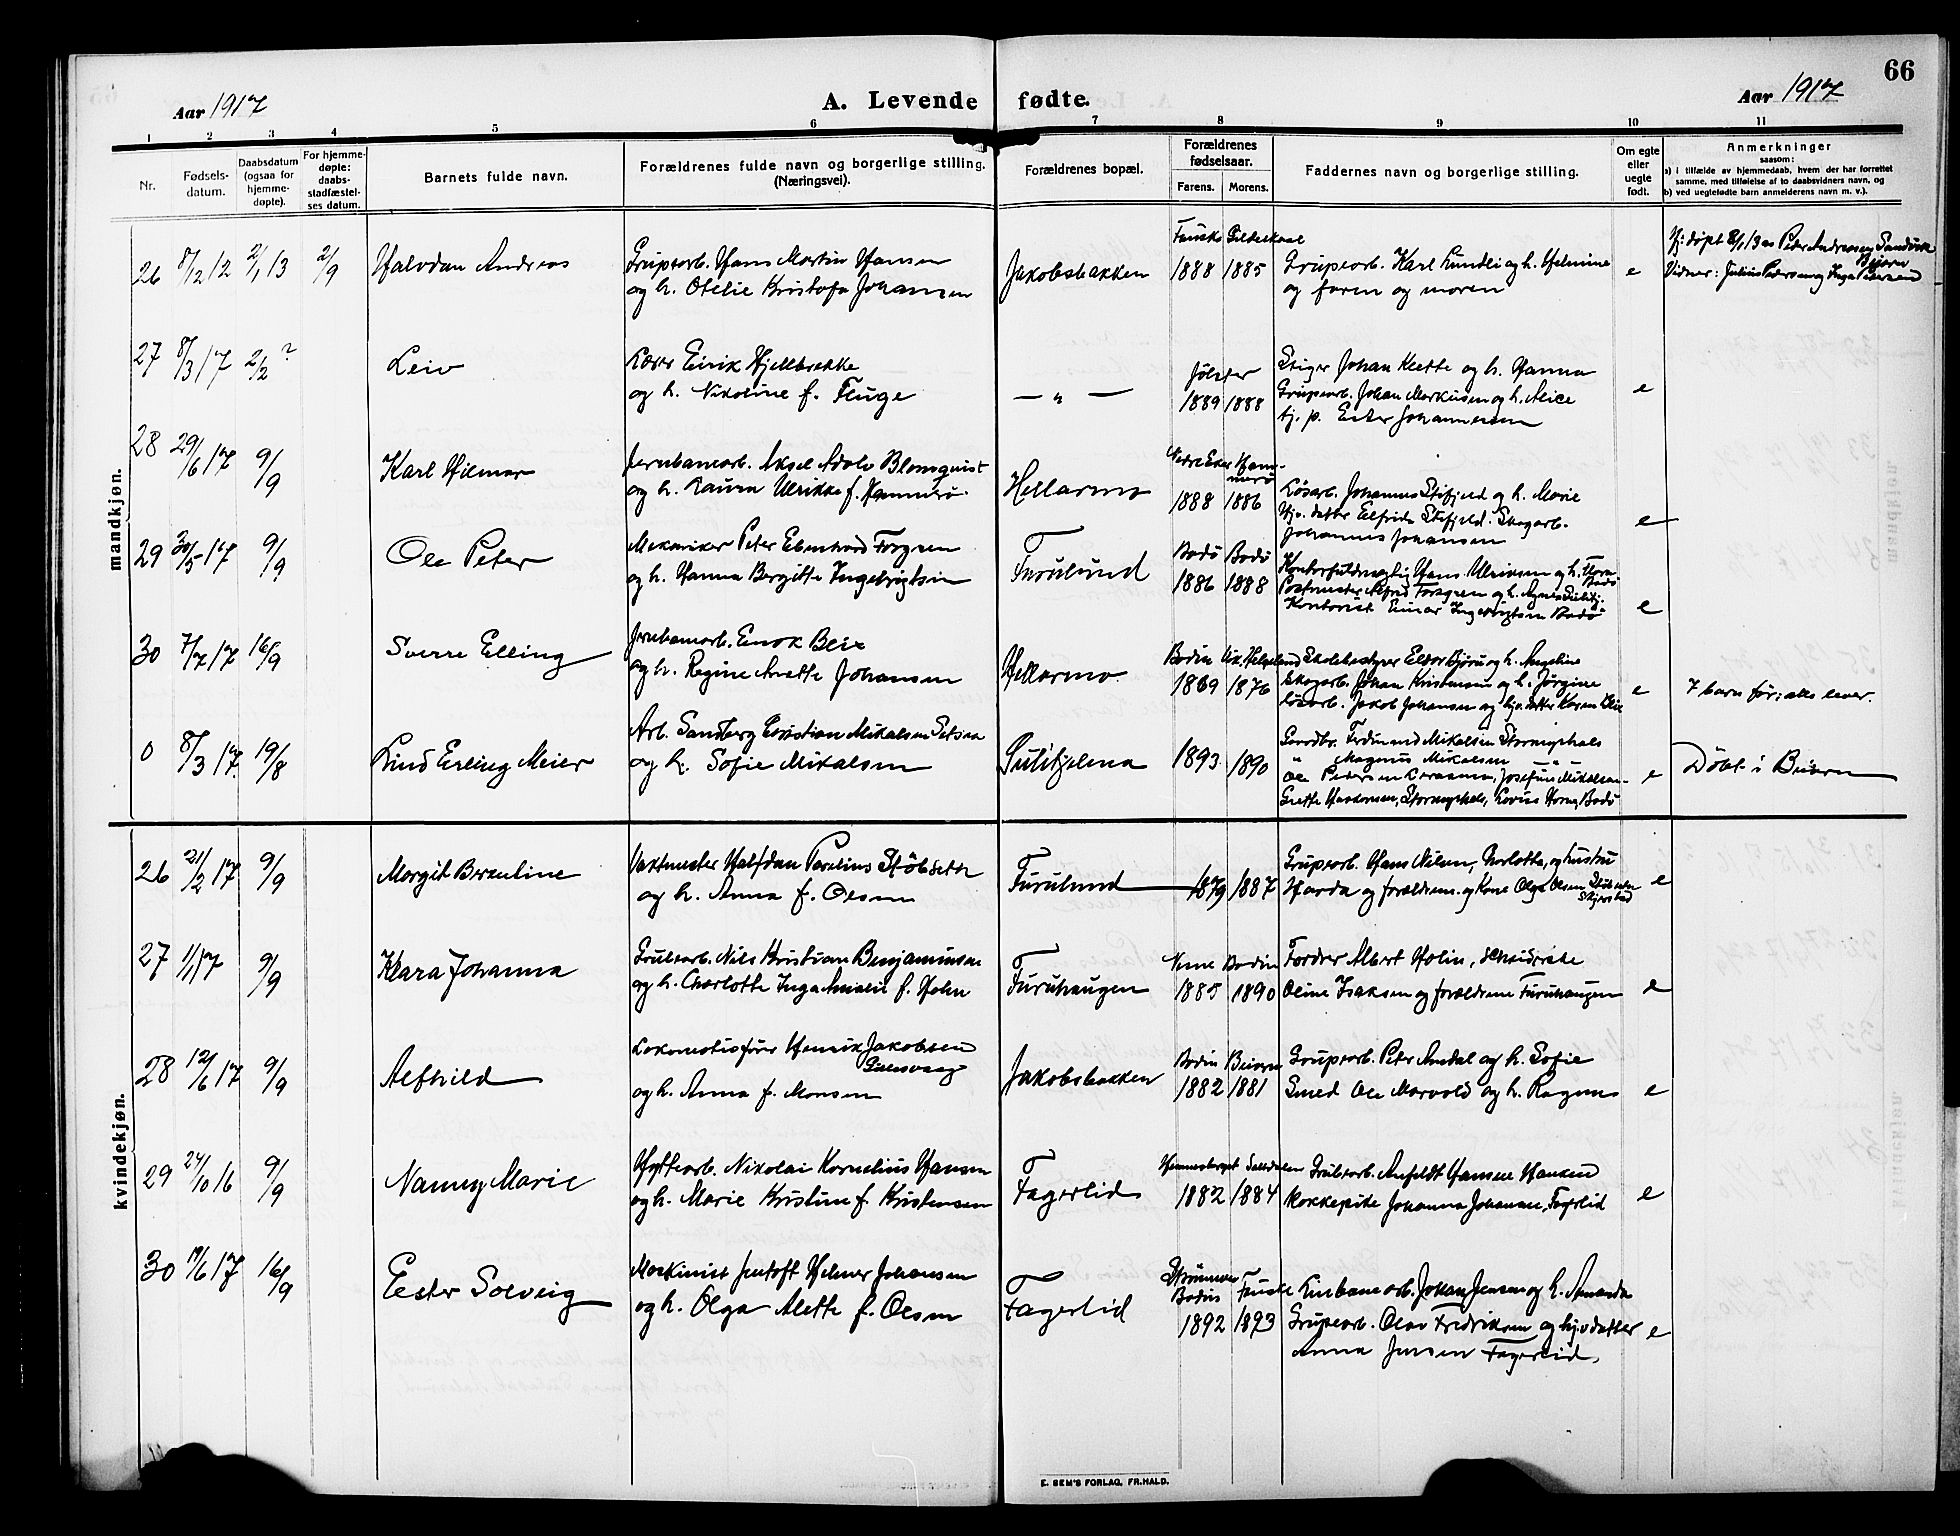 66
Aar 1917 A. Levende fødte. Aar 1917
1 2 3 4 5 6 7 8 9 10 11
Nr.
Fødsels-
datum.
Daabsdatum
(ogsaa for
hjemme-
døpte).
For hjemme-
døpte:
daabs-
stadfæstel-
ses datum.
Barnets fulde navn.
Forældrenes fulde navn og borgerlige stilling.
(Næringsvei).
Forældrenes bopæl.
Forældrenes
fødselsaar.
Farens. Morens.
Faddernes navn og borgerlige stilling.
Om egte
eller
uegte
født.
Anmerkninger
saasom:
a) i tilfælde av hjemmedaab, hvem der har forrettet
samme, med tilføielse af to daabsvidners navn, og
b) ved uegtefødte barn anmelderens navn m. v.).
mandkjøn.
26 8/12 12 2/1 13 2/9 Halvdan Andreas
Grubearb. Hans Martin Hansen
og h. Otelie Kristofa Johansen
Jakobsbakken
Fauske Gildeskaal
1888 1885
Grubearb. Karl Lundli og h. Helmine
og faren og moren
e
Hj. døpt 2/1 13 av Peder Andreassen Sandvik
Beiarn
Vidner: Julius Pedersen og Inga Pedersen
27 8/3 17 2/2 ? Leiv
Lærer Eirik Hjellbrekke
og h. Nikoline f. Fluge
— " —
Jølster
1889 1888
Stiger Johan Klette og h. Hanna
Grubearb. Johan Markussen og h. Alice
tj. p. Ester Johannessen
e
28 29/6 17 9/9 Karl Hilmar
Jernbanearb. Aksel Adolv Blomqvist
og h. Laura Ulrikke f. Hammerø
Hellarmo
Nedre Eker Ham-
merø
1888 1886
Løsarb. Johannes Stifjeld og h. Marie
Hjv. datter Elfrida Stifjeld. Skogarb.
Johannes Johansen
e
29 30/5 17 9/9 Ole Peter
Mekaniker Peter Edvard Forsgren
og h. Hanna Bergitte Ingebrigtsen
Furulund
Bodø Bodø
1886 1888
Kontorfuldmægtig Hans Ulriksen og h. Thora
Bodø
Postmester Alfred Forsgren og h. Agnes Sulitj.
Kontorist Einar Ingebrigtsen Bodø
e
30 7/7 17 16/9 Sverre Elling
Jernbanearb. Enok Beie
og h. Regine Anette Johansen
Hellarmo
Bodin Vik, Helgeland
1869 1876
Skolebestyrer Eldor Bjøru og h. Angeline
Skogarb. Johan Kristensen og h. Jørgine
Løsarb. Jakob Johansen og hjv. datter Karen Elise
e
7 barn før; alle lever.
0 8/3 17 19/8 Lind Erling Meier
Arb. Sandberg Kristian Mikalsen Setsaa
og h. Sofie Mikalsen
Sulitjelma
1893 1890
Gaardbr. Ferdinand Mikalsen Stormyrhals
" Magnus Mikalsen "
Ole Pedersen Larsamo, Josefine Mikalsen
Grethe Hansen, Stormyrhals, Lovise Horne, Bodø
e
Døbt i Beiarn
kvindekjøn.
26 21/2 17 9/9 Margit Bersuline
Vaktmester Halfdan Parelius Støbseter
og h. Anna f. Olsen
Furulund
1879 1887
Grubearb. Hans Nilsen, Charlotta, og hustru
Harda og forældrene og Kone Olga Olsen Støbseter
Skjerstad
e
27 1/1 17 9/9 Klara Johanna
Grubearb. Nils Kristian Benjaminsen
og h. Charlotte Inga Amalie f. Holm
Furuhaugen
Nesne Bodin
1885 1890
Fordrer Albert Holm, Scheiderske
Oline Isaksen og forældrene Furuhaugen
e
28 12/6 17 9/9 Alfhild
Lokomotivfører Henrik Jakobsen
Gunsvaag
og h. Anna f. Monsen
Jakobsbakken
Bodin Beiarn
1882 1881
Grubearb. Peter Amdal og h. Sofie
Smed Ole Marvold og h. Ragna
e
29 24/10 16 9/9 Nanny Marie
Hyttearb. Nikolai Kornelius Hansen
og h. Marie Kristine f. Kristensen
Fagerlid
Hemnesberget Saltdalen
1882 1884
Grubearb. Anfeldt Hansen Hanken
Kokkepike Johanna Johansen, Fagerlid
e
30 19/6 17 16/9 Ester Solveig
Maskinist Jentoft Helmer Johansen
og h. Olga Alette f. Olsen
Fagerlid
Strømmen
Bodin Fauske
1892 1893
Linbanearb. Johan Jensen og h. Amanda
Grubearb. Olav Fredriksen og hjv. datter
Anna Jensen Fagerlid.
e
E. SEM'S FORLAG, FR.HALD.